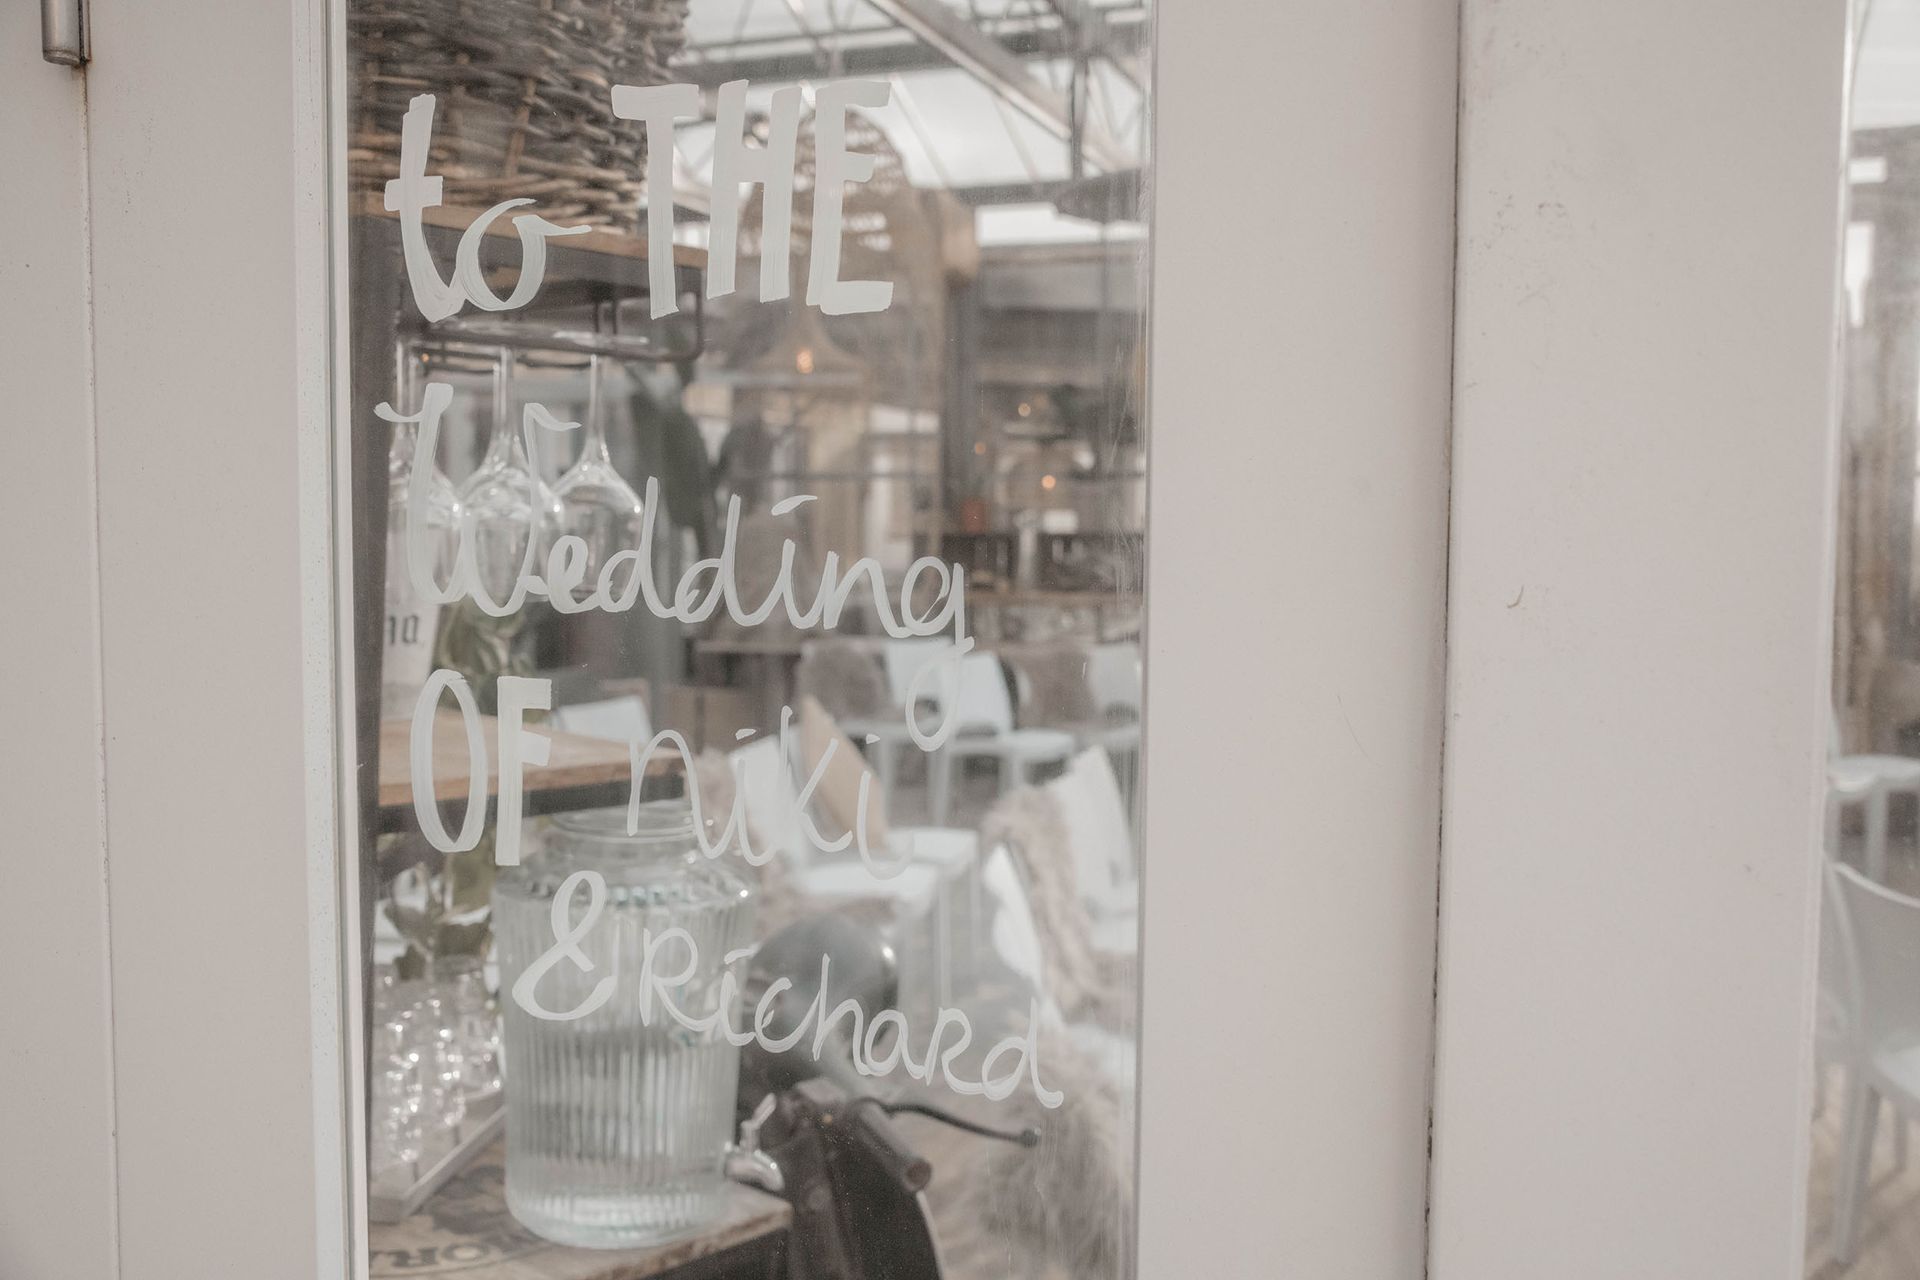 to THE
Wedding
OF niki
& Richard